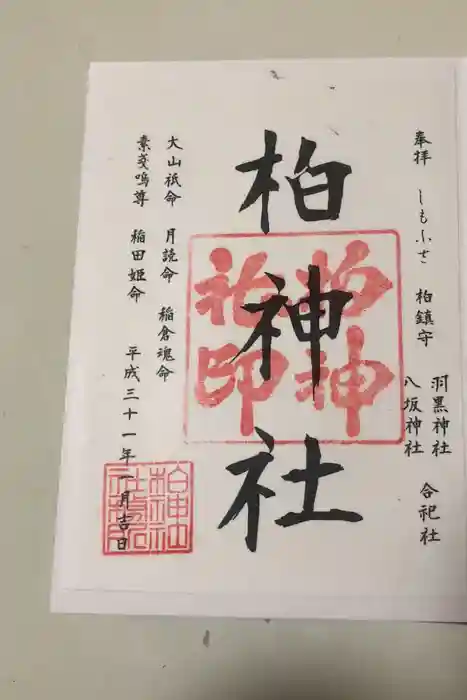 奉拝 しもふさ 柏鎮守 羽黒神社 八坂神社 合祀社
柏神社
柏神社印
大山祇命 月読命 稲倉魂命
素戔嗚尊 稲田姫命
平成三十一年一月吉日
柏神社